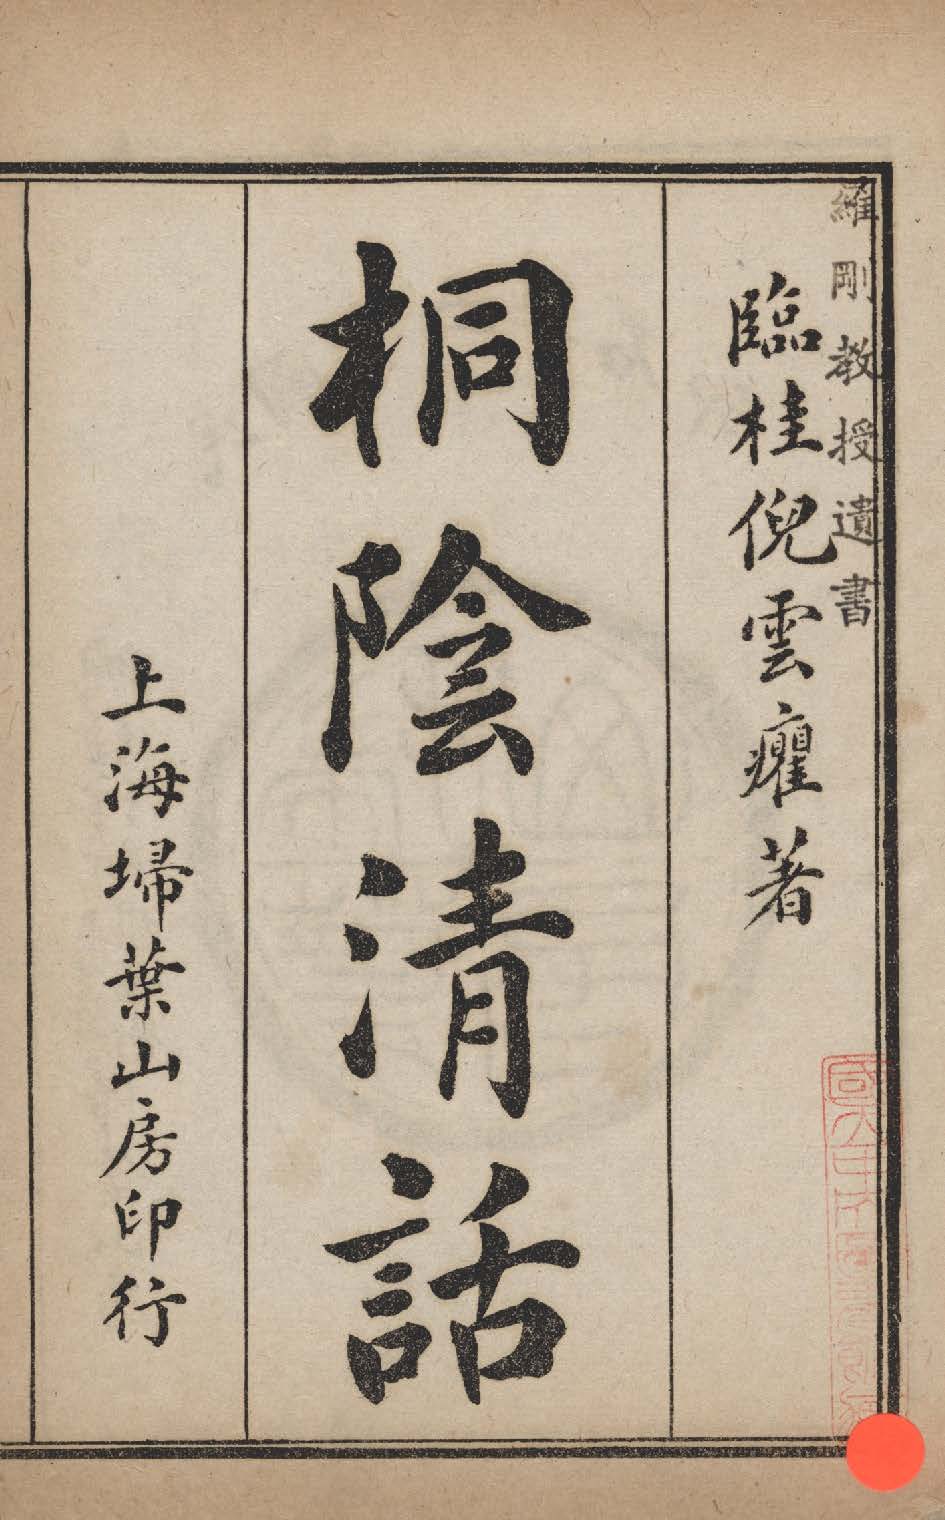 羅剛教授遺書
臨桂倪雲癯著
桐陰清話
上海埽葉山房印行